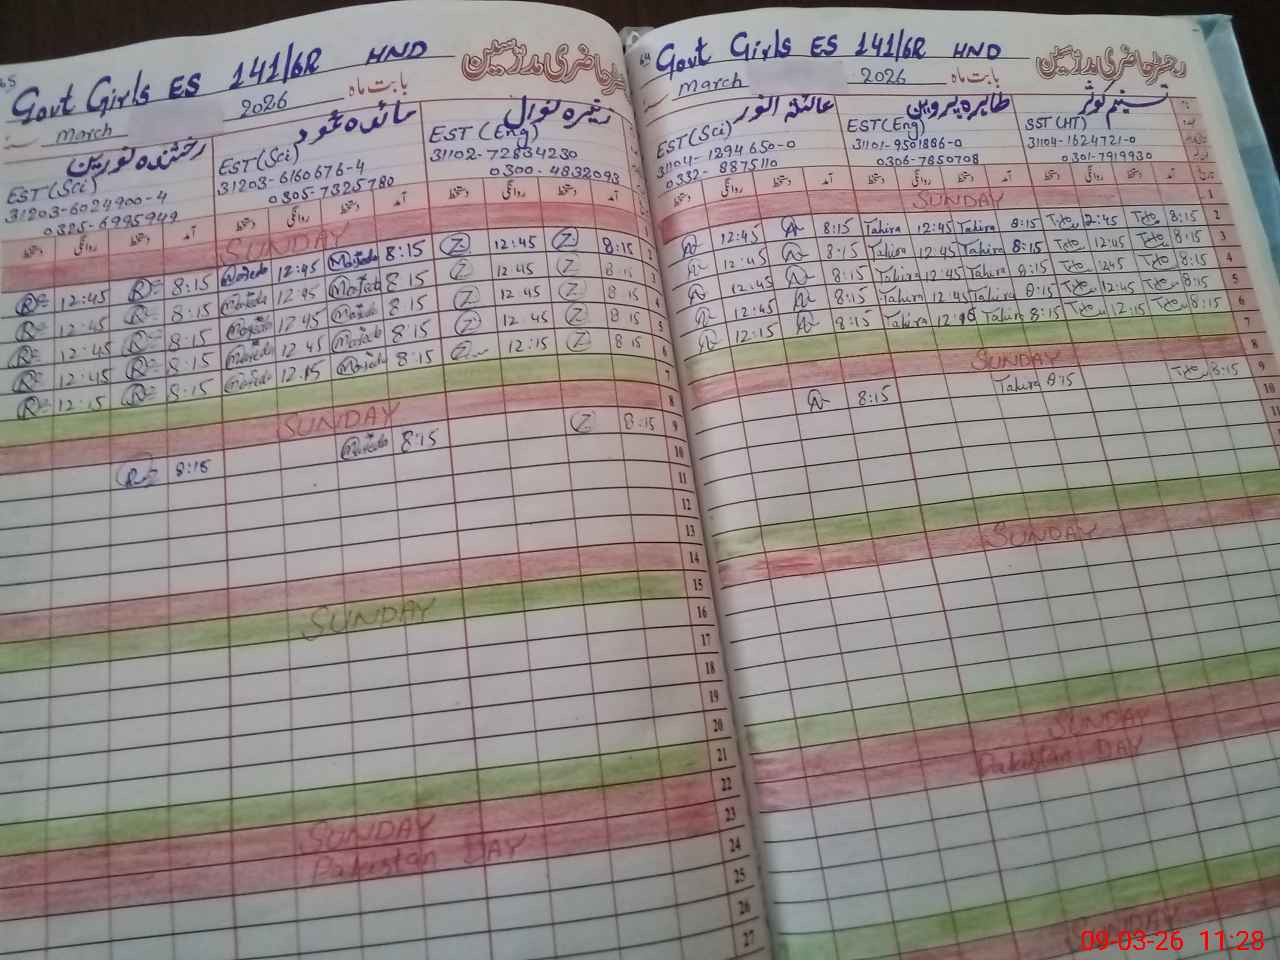 65
Govt Girls ES 141/6R HND
رجسٹر حاضری مدرسین
March 2026 بابت ماہ
رخشندہ نورین
EST(Sci)
31203-6024900-4
0325-6995949
مائدہ محمود
EST(Sci)
31203-6160676-4
0305-7325780
EST(Eng)
31102-72834230
0300-4832093
دستخط روانگی دستخط آمد دستخط روانگی دستخط آمد دستخط روانگی دستخط آمد
SUNDAY
12:45 8:15 12:45 8:15 12:45 8:15 2
12:45 8:15 12:45 8 15 12 45 8:15 3
12:45 8:15 12 45 8 15 12 45 8 15 4
12:45 8:15 12 45 8:15 12 45 8 15 5
12:15 8:15 12:15 8:15 12:15 8 15 6
7
SUNDAY 8
8:15 8:15 8:15 9
10
11
12
13
14
SUNDAY 15
16
17
18
19
20
21
SUNDAY 22
Pakistan DAY 23
24
25
26
27
64
Govt Girls ES 141/6R HND
رجسٹر حاضری مدرسین
March 2026 بابت ماہ
عائشہ انور
EST(Sci)
31104-1294650-0
0332-8875110
طاہرہ پروین
EST(Eng)
31101-9501866-0
0306-7650708
تسنیم کوثر
SST(HT)
31104-1624721-0
0301-7919930
دستخط روانگی دستخط آمد دستخط روانگی دستخط آمد دستخط روانگی دستخط آمد
SUNDAY 1
12:45 8:15 Tahira 12:45 Tahira 8:15 12:45 8:15 2
12:45 8:15 Tahira 12:45 Tahira 8:15 12:45 8:15 3
12:45 8:15 Tahira 12:45 Tahira 8:15 1245 8:15 4
12:45 8:15 Tahira 12:45 Tahira 8:15 12:45 8:15 5
12:15 8:15 Tahira Tahira 8:15 12:15 8:15 6
7
SUNDAY 8
8:15 Tahira 8:15 8:15 9
10
11
SUNDAY
SUNDAY
Pakistan DAY
SUNDAY
09-03-26 11:28